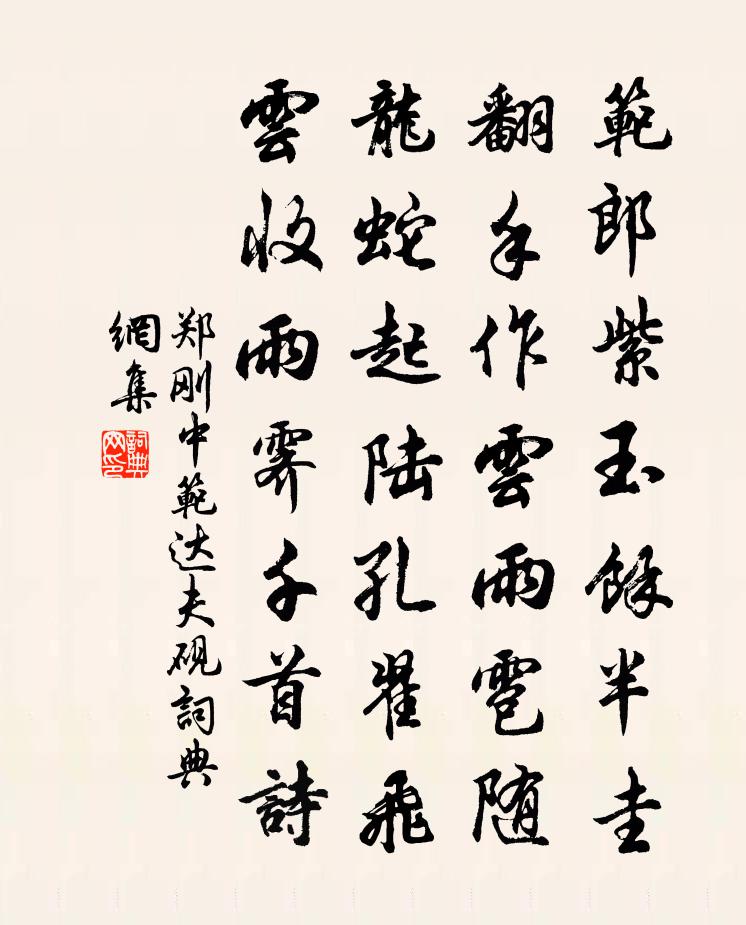 範郎紫玉餘半圭
翻手作雲雨雹随
龍蛇起陆孔翟飛
雲收雨霁千首詩
郑刚中範达夫砚詞典
網集
詞典
网印